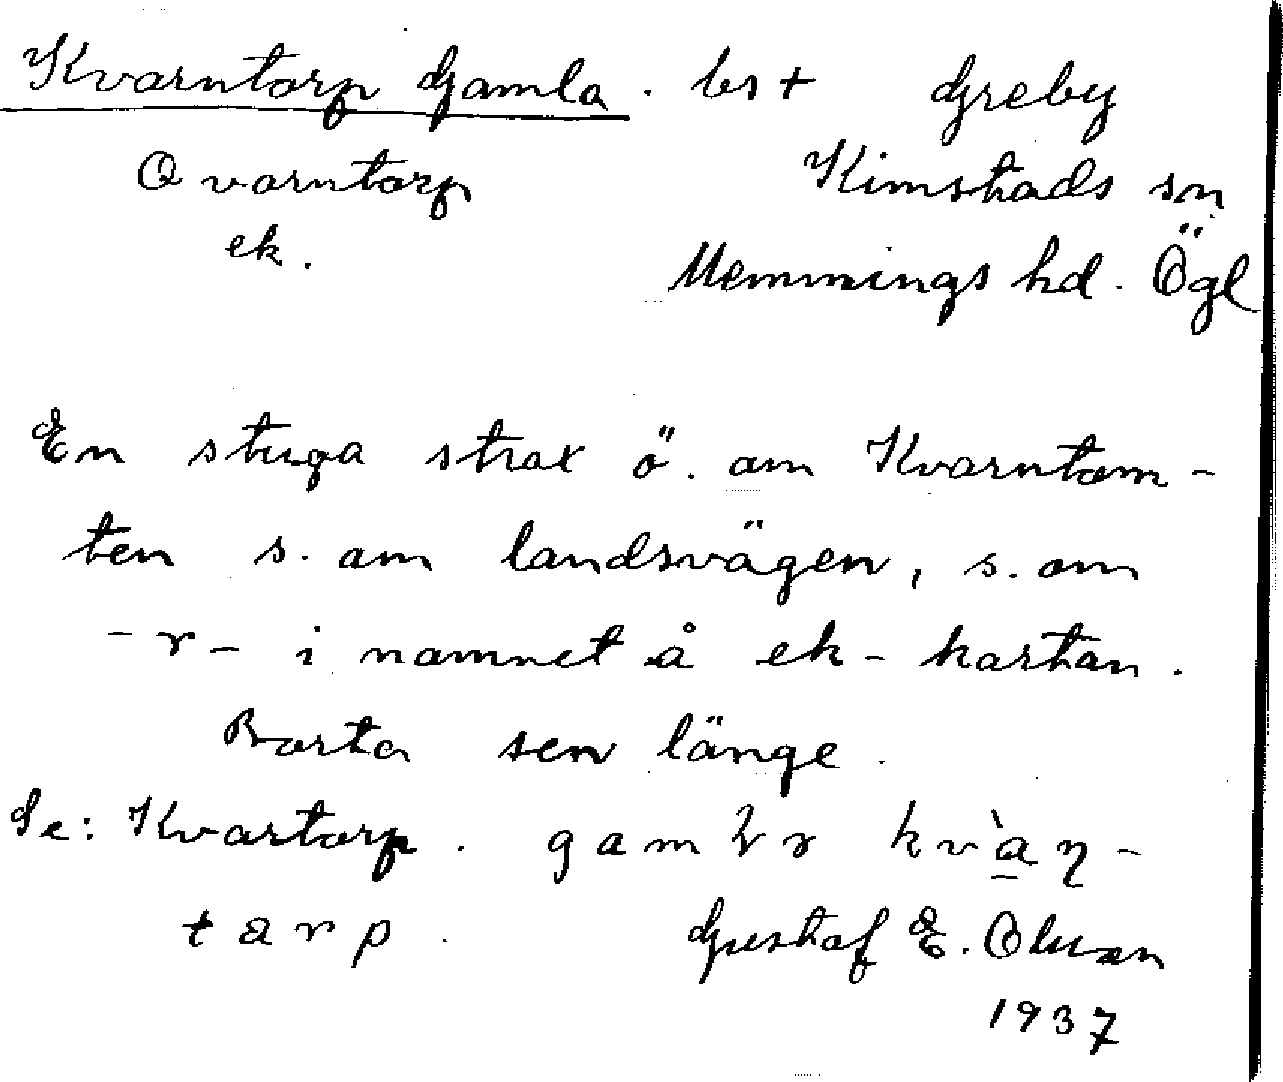 Kvarntorp Gamla. bs + Greby
Qvarntorp Kimstads sn
ek. Memmings hd. Ögl
En stuga strax ö. om Kvarntom-
ten s. om landsvägen, s. om
-r- i namnet å ek-kartan.
Borta sen länge.
Se: Kvartorp. kv̀a̲ɳ-
tarp. Gustaf E. Olsson
1937